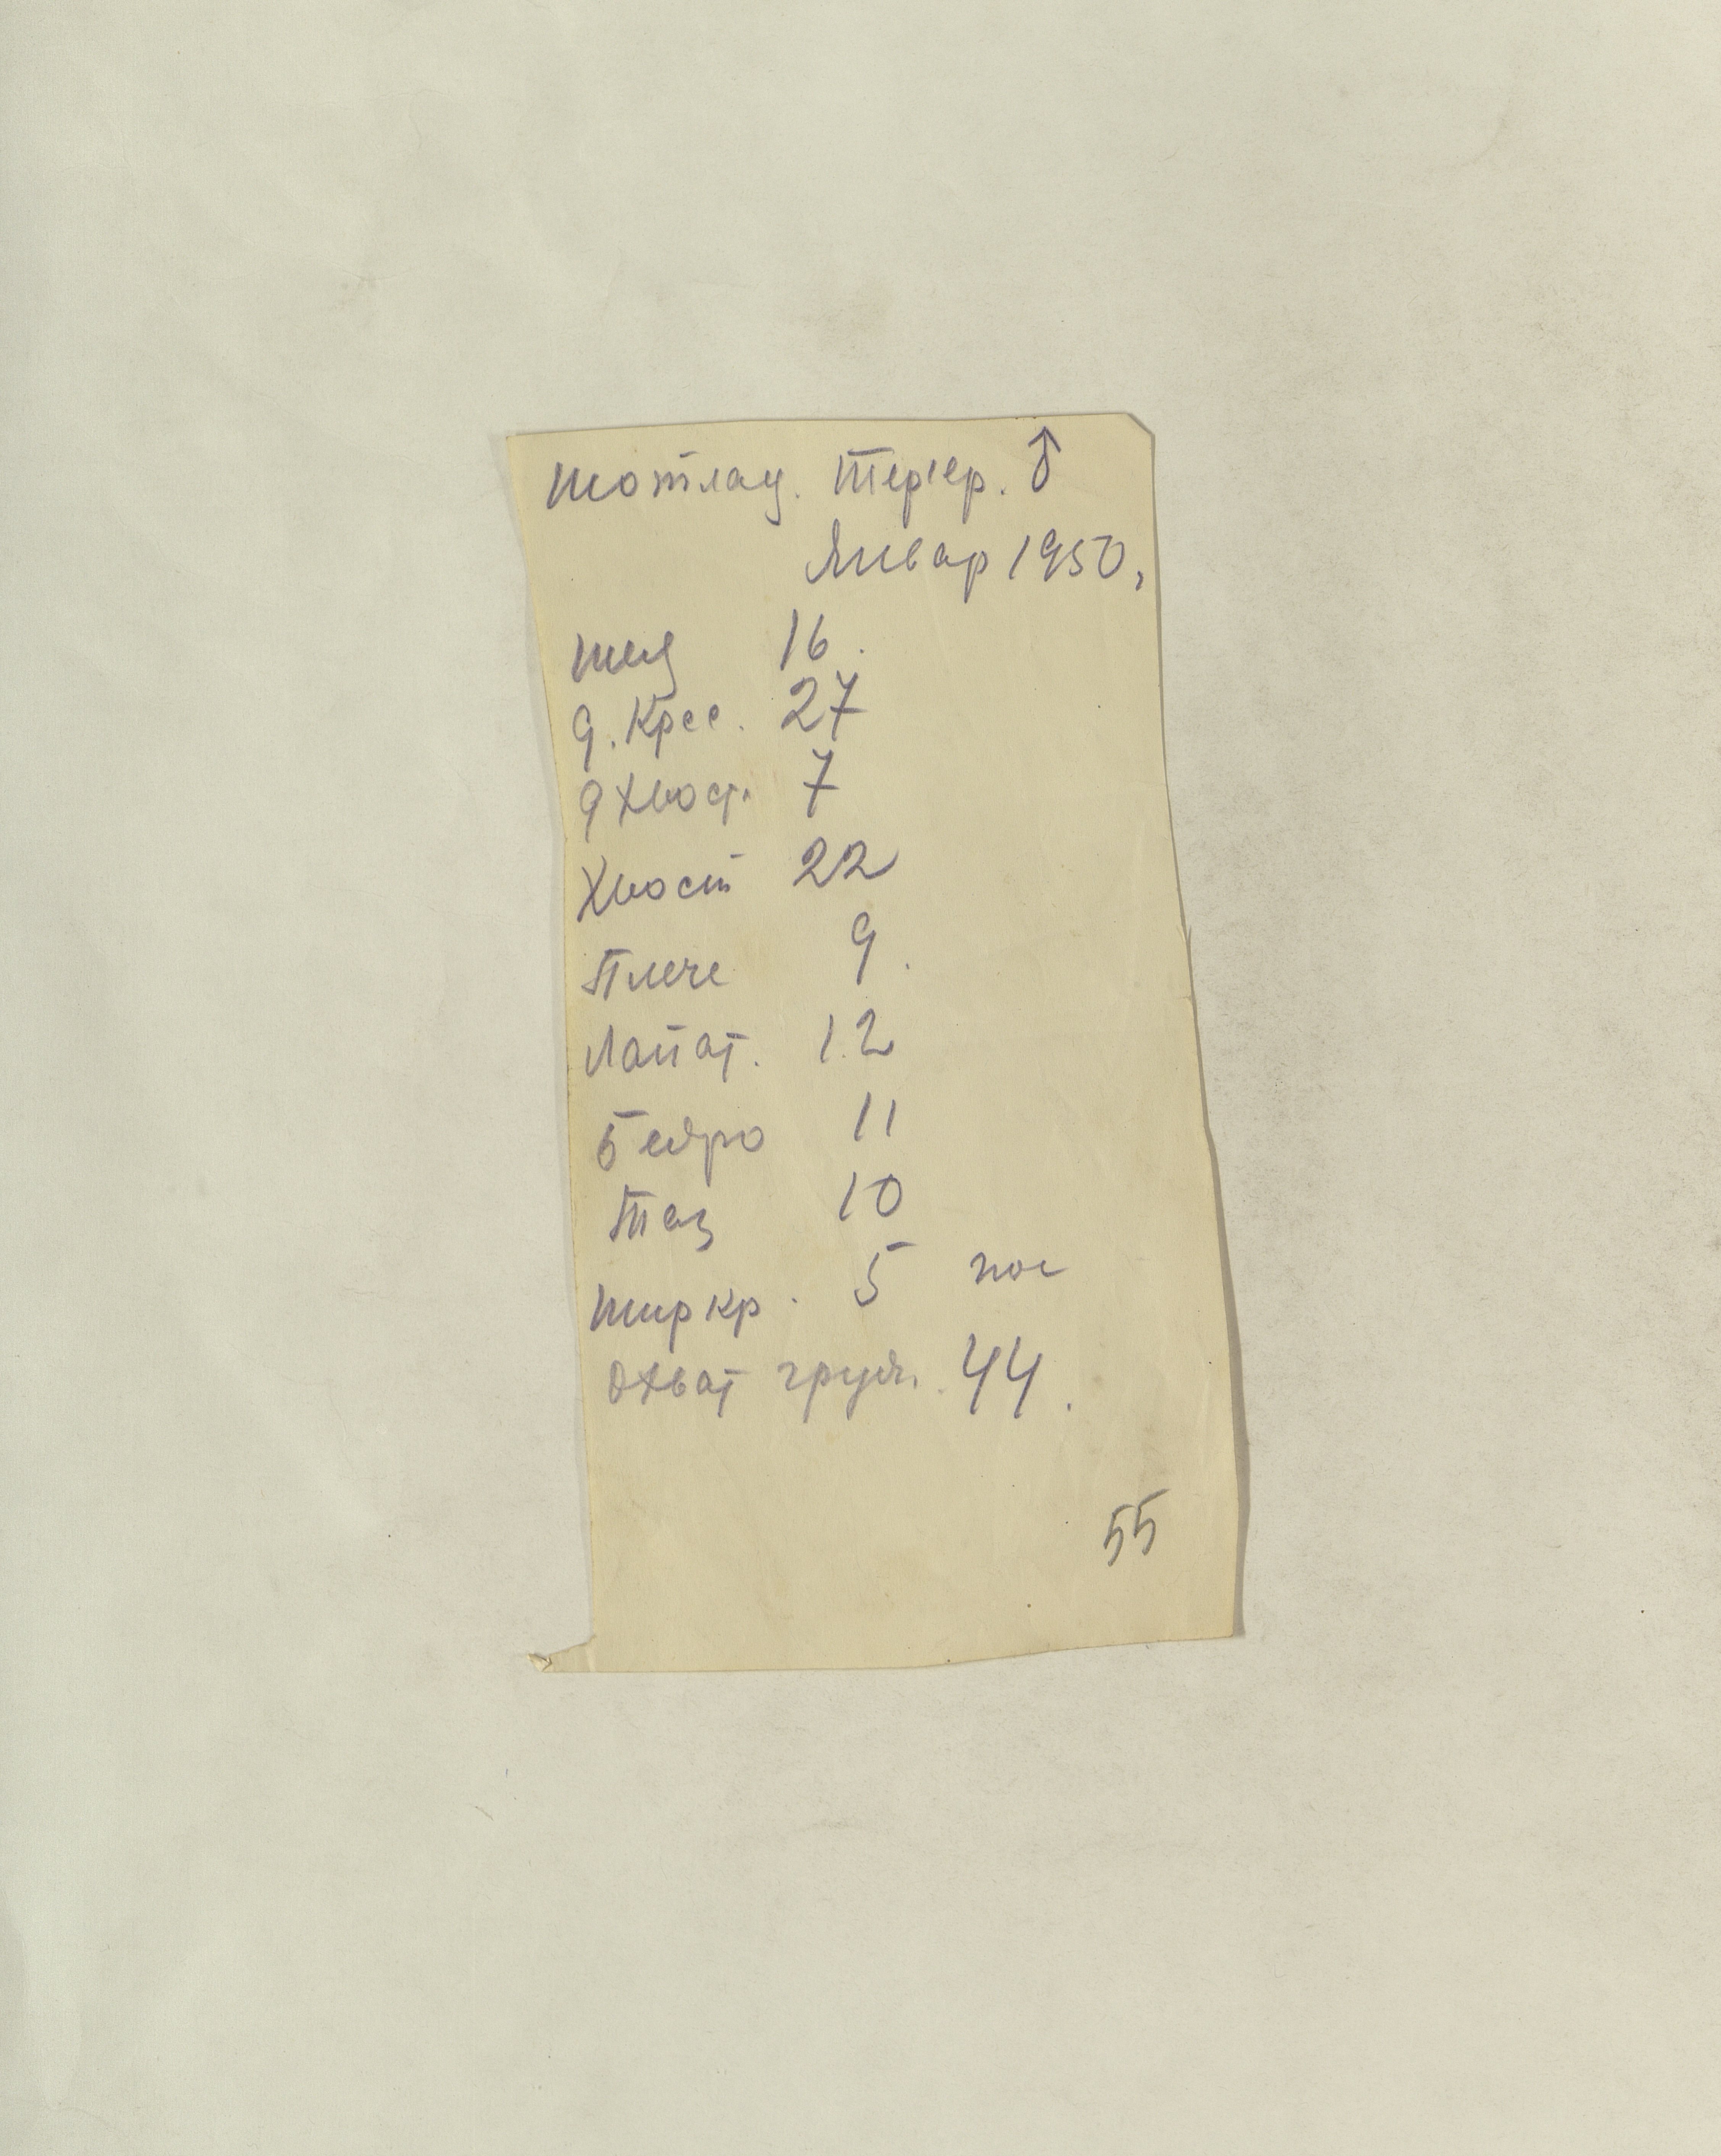 шотлан. терьер. ♂
Январ 1950.
шея 16.
д. крес. 27
д хвост. 7
Хвост 22
Плече 9.
Лопат. 12
бедро 11
таз 10
шир кр. 5
Охват груди. 44.
55